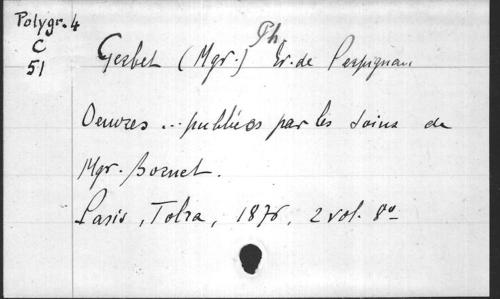 Polygr. 4
C
51
Gerbet (Mgr.) Ph. Év. de Perpignan
Oeuvres ... publiées par les soins de
Mgr. Bornet.
Paris, Tolra, 1876, 2 vol. 8º